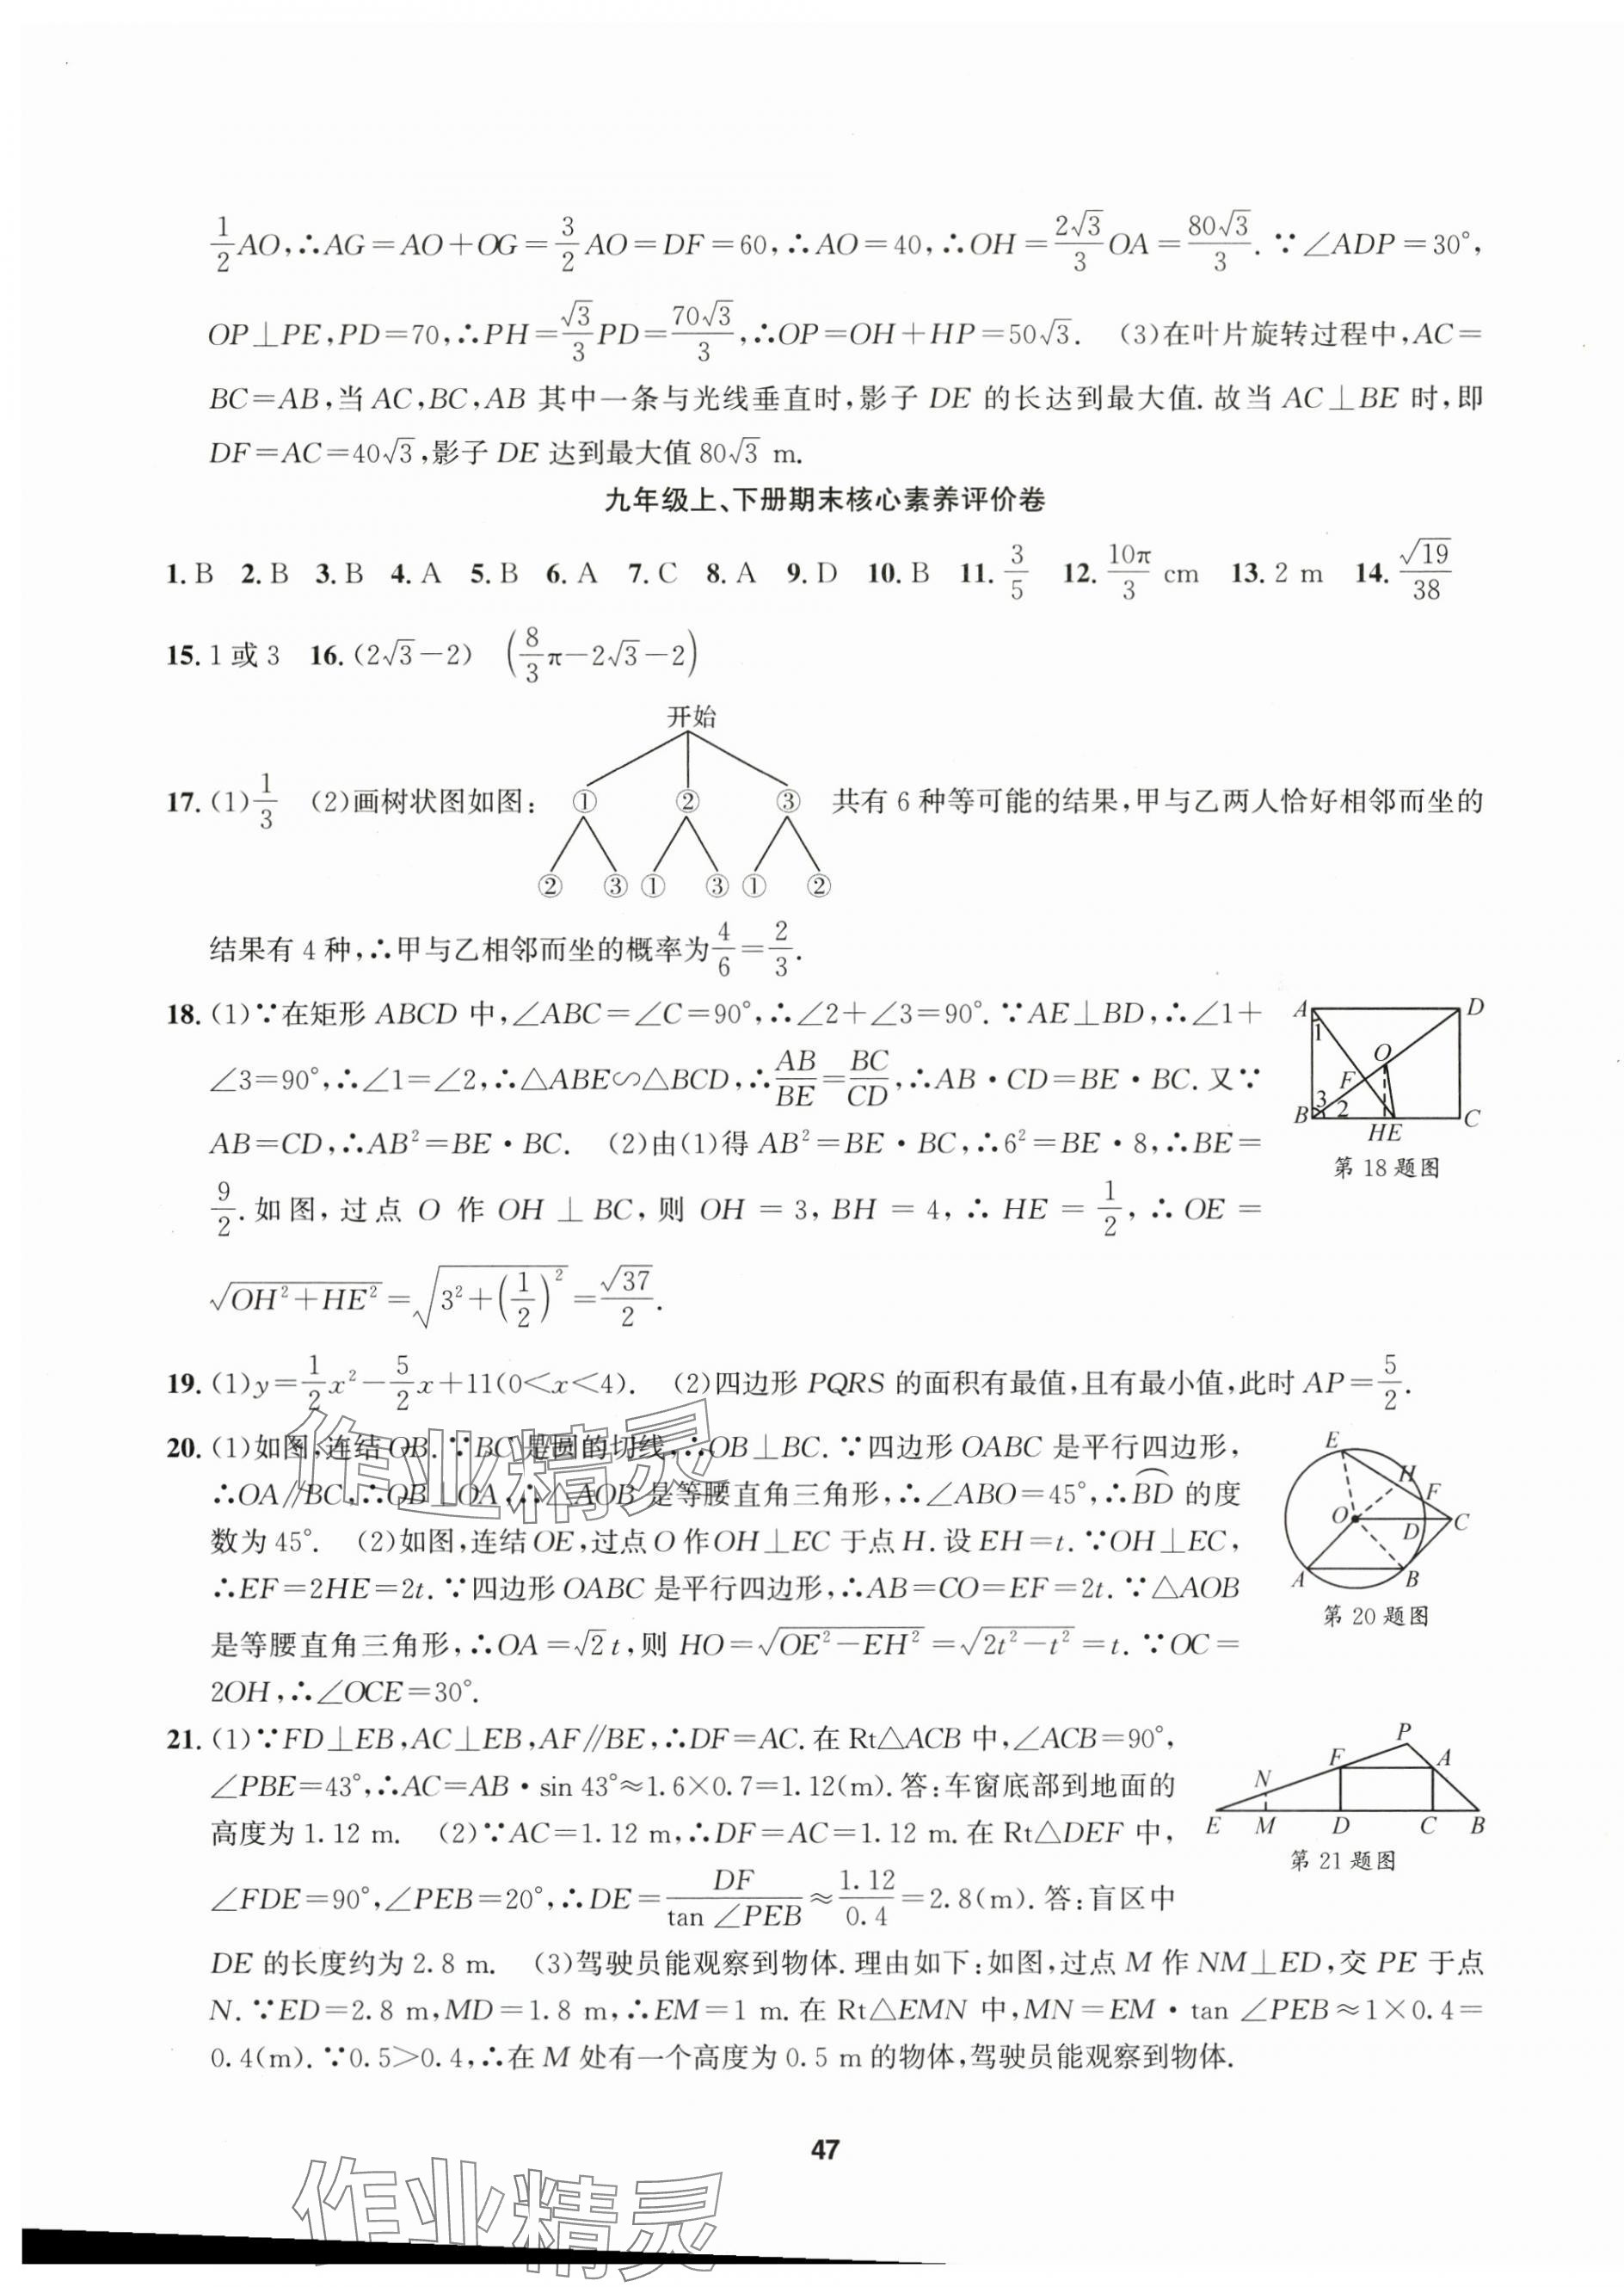 1/2 AO,∴AG=AO+OG=3/2 AO=DF=60,∴AO=40,∴OH=2√3/3 OA=80√3/3.∵∠ADP=30°,
OP⊥PE,PD=70,∴PH=√3/3 PD=70√3/3,∴OP=OH+HP=50√3. (3)在叶片旋转过程中,AC=
BC=AB,当AC,BC,AB其中一条与光线垂直时,影子DE的长达到最大值.故当AC⊥BE时,即
DF=AC=40√3,影子DE达到最大值80√3 m.
九年级上、下册期末核心素养评价卷
1.B 2.B 3.B 4.A 5.B 6.A 7.C 8.A 9.D 10.B 11.3/5 12.10π/3 cm 13.2 m 14.√19/38
15.1或3 16.(2√3-2) (8/3π-2√3-2)
开始
17.(1)1/3 (2)画树状图如图: ① ② ③ 共有6种等可能的结果,甲与乙两人恰好相邻而坐的
② ③ ① ③ ① ②
结果有4种,∴甲与乙相邻而坐的概率为4/6=2/3.
18.(1)∵在矩形ABCD中,∠ABC=∠C=90°,∴∠2+∠3=90°.∵AE⊥BD,∴∠1+
∠3=90°,∴∠1=∠2,∴△ABE∽△BCD,∴AB/BE=BC/CD,∴AB·CD=BE·BC.又∵
AB=CD,∴AB²=BE·BC. (2)由(1)得AB²=BE·BC,∴6²=BE·8,∴BE=
9/2.如图,过点O作OH⊥BC,则OH=3,BH=4,∴HE=1/2,∴OE=
√(OH²+HE²)=√(3²+(1/2)²)=√37/2.
A D
1
O
F
3 2
B HE C
第18题图
19.(1)y=1/2x²-5/2x+11(0<x<4). (2)四边形PQRS的面积有最值,且有最小值,此时AP=5/2.
20.(1)如图,连结OB.∵BC是圆的切线,∴OB⊥BC.∵四边形OABC是平行四边形,
∴OA∥BC,∴OB⊥OA,∴△AOB是等腰直角三角形,∴∠ABO=45°,∴BD⌒的度
数为45°. (2)如图,连结OE,过点O作OH⊥EC于点H.设EH=t.∵OH⊥EC,
∴EF=2HE=2t.∵四边形OABC是平行四边形,∴AB=CO=EF=2t.∵△AOB
是等腰直角三角形,∴OA=√2t,则HO=√(OE²-EH²)=√(2t²-t²)=t.∵OC=
2OH,∴∠OCE=30°.
E
H
F
O D C
A B
第20题图
21.(1)∵FD⊥EB,AC⊥EB,AF∥BE,∴DF=AC.在Rt△ACB中,∠ACB=90°,
∠PBE=43°,∴AC=AB·sin 43°≈1.6×0.7=1.12(m).答:车窗底部到地面的
高度为1.12 m. (2)∵AC=1.12 m,∴DF=AC=1.12 m.在Rt△DEF中,
∠FDE=90°,∠PEB=20°,∴DE=DF/tan∠PEB≈1.12/0.4=2.8(m).答:盲区中
DE的长度约为2.8 m. (3)驾驶员能观察到物体.理由如下:如图,过点M作NM⊥ED,交PE于点
N.∵ED=2.8 m,MD=1.8 m,∴EM=1 m.在Rt△EMN中,MN=EM·tan∠PEB≈1×0.4=
0.4(m).∵0.5>0.4,∴在M处有一个高度为0.5 m的物体,驾驶员能观察到物体.
P
F A
N
E M D C B
第21题图
47
作业精灵
作业精灵